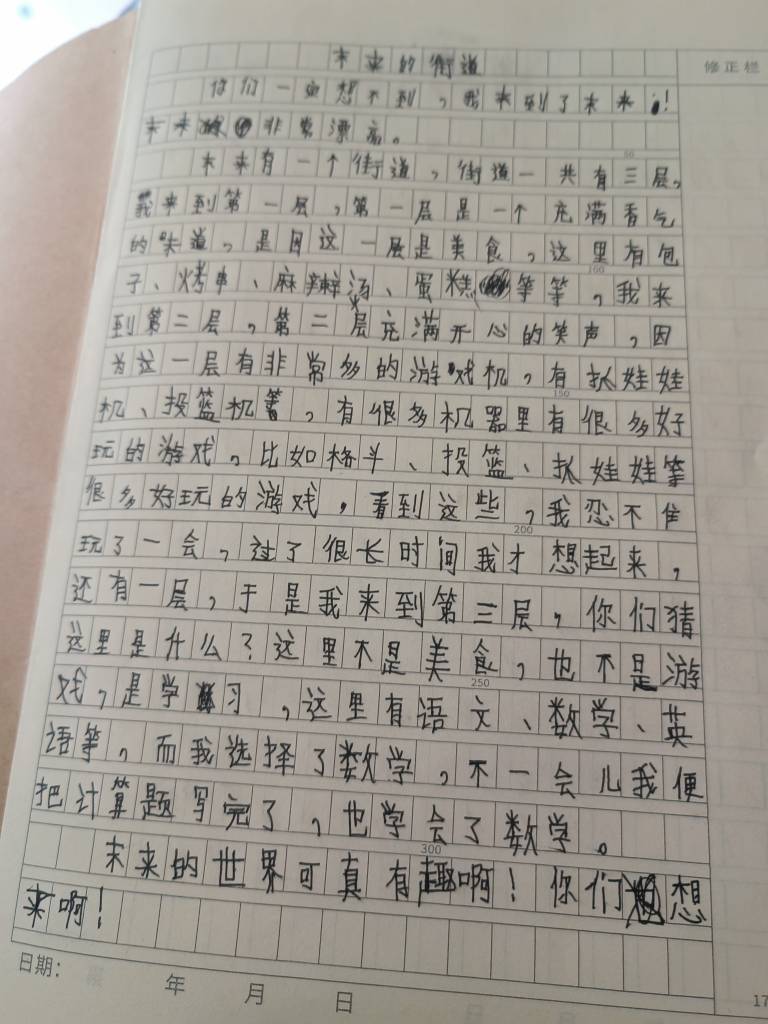 未来的街道
修正栏
你们一定想不到，我来到了未来！
未来的非常漂亮。
未来有一个街道，街道一共有三层，
我来到第一层，第一层是一个充满香气
的味道，是因这一层是美食，这里有包
子、烤串、麻辣汤、蛋糕等等，我来
到第二层，第二层充满开心的笑声，因
为这一层有非常多的游戏机，有抓娃娃
机、投篮机等，有很多机器里有很多好
玩的游戏，比如格斗、投篮、抓娃娃等
很多好玩的游戏，看到这些，我忍不住
玩了一会，过了很长时间我才想起来，
还有一层，于是我来到第三层，你们猜
这里是什么？这里不是美食，也不是游
戏，是学习，这里有语文、数学、英
语等，而我选择了数学，不一会儿我便
把计算题写完了，也学会了数学。
未来的世界可真有趣啊！你们想
来啊！
日期： 年 月 日
17